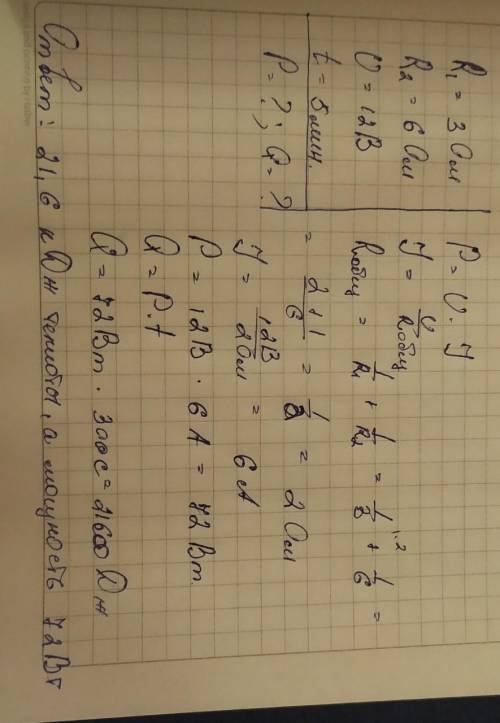 R₁ = 3 Ом
R₂ = 6 Ом
U = 12В
t = 5 мин.
P = ?; Q = ?
P = U · J
J = U/Rобщ
Rобщ = 1/R₁ + 1/R₂ = 1/3 ^1·2 + 1/6 =
= 2+1/6 = 1/2 = 2 Ом
J = 12В/2Ом = 6 А
P = 12В · 6 А = 72 Вт
Q = P·t
Q = 72Вт · 300с = 21600 Дж
Ответ: 21,6 кДж теплоты, а мощность 72Вт